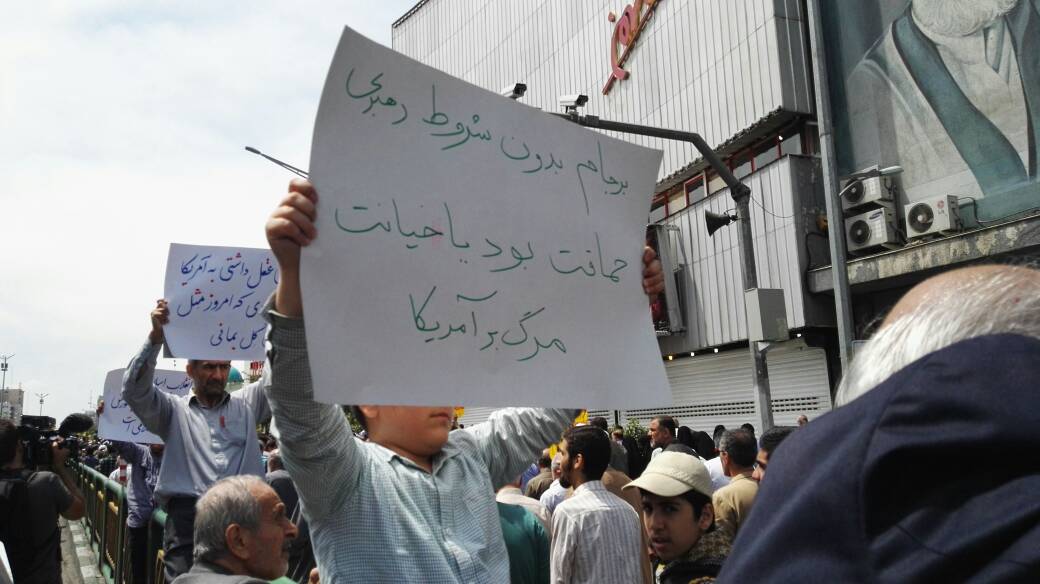 برجام بدون شروط رهبری
حماقت بود یا خیانت
مرگ بر آمریکا
غفل داشتی به آمریکا
ی که امروز مثل
کل بمافی